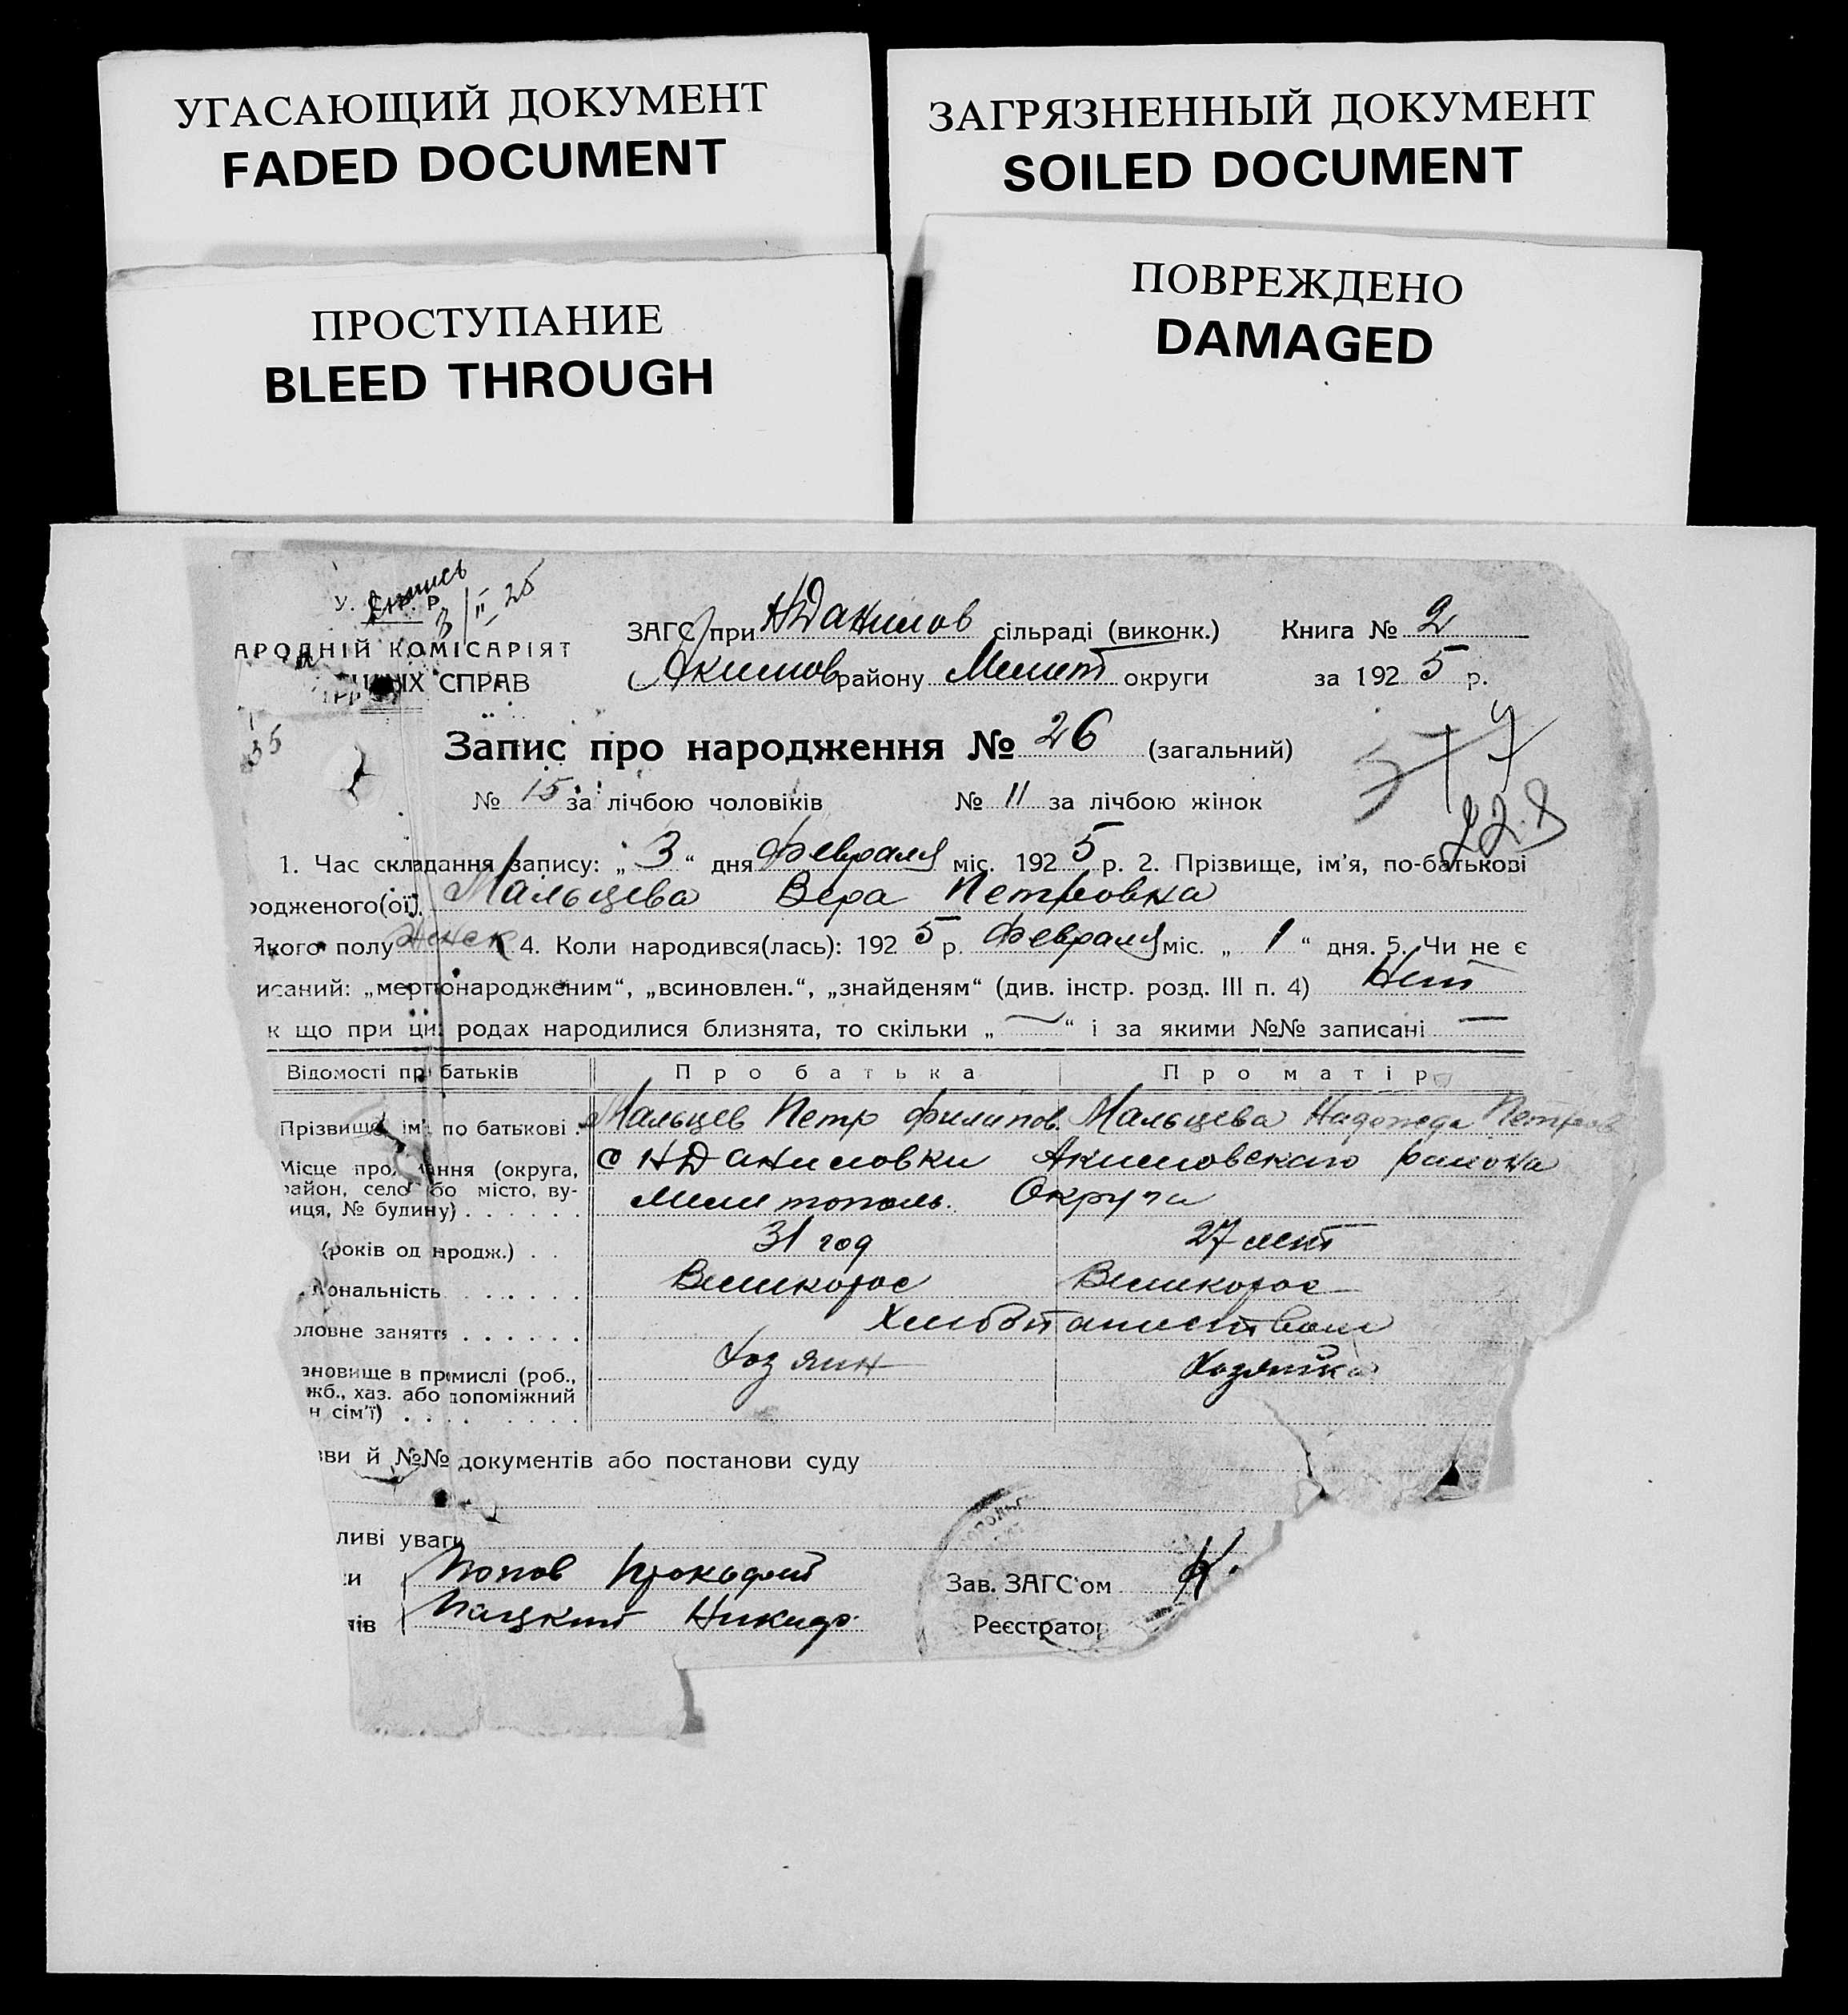 УГАСАЮЩИЙ ДОКУМЕНТ
FADED DOCUMENT
ЗАГРЯЗНЕННЫЙ ДОКУМЕНТ
SOILED DOCUMENT
ПРОСТУПАНИЕ
BLEED THROUGH
ПОВРЕЖДЕНО
DAMAGED
У. С. Р. Р.
3/II 25
АРОДНІЙ КОМІСАРІЯТ
СПРАВ
35
ЗАГС при НДанилов сільраді (виконк.)
Акимов району Мелит округи
Книга № 2
за 1925 р.
Запис про народження № 26 (загальний)
№ 15 за лічбою чоловіків № 11 за лічбою жінок
1. Час складання запису: „3“ дня Февраля міс. 1925 р. 2. Прізвище, ім'я, по-батькові
родженого(ої) Мальцева Вера Петровна
Якого полу Женск 4. Коли народився(лась): 1925 р. Февраля міс. „1“ дня. 5. Чи не є
исаний: „мертвонародженим“, „всиновлен.“, „знайденям“ (див. інстр. розд. III п. 4) Нет
к що при цих родах народилися близнята, то скільки „—“ і за якими №№ записані —
Відомості про батьків Про батька Про матір
Прізвище, ім'я, по батькові . Мальцев Петр Филипов. Мальцева Надежда Петров
Місце прожив́ання (округа, с НДаниловки Акимовскаго района
район, село або місто, ву-
иця, № будинку) . . . . . . Мелитополь. Округа
(років од народж.) . . 31 год 27 лет
ональність . . . . . . . Великорос Великорос
оловне заняття . . . . . . Хлебопашеством
ановище в промислі (роб., Хозяин Хозяйка
жб., хаз. або допоміжний
н сім'ї) . . . . . . . .
зви й №№ документів або постанови суду
ливі уваги
ки Попов Прокофий
лів Пацкий Никиф.
Зав. ЗАГС'ом К.
Реєстратор